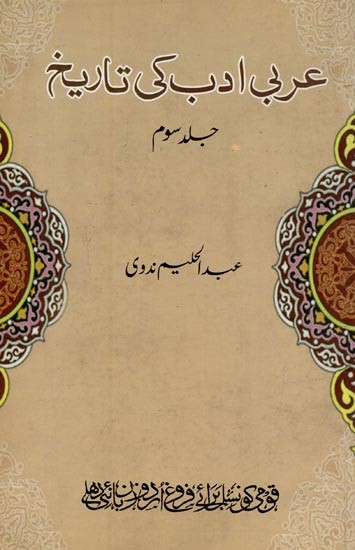 عربی ادب کی تاریخ
جلد سوم
عبدالحلیم ندوی
قومی کونسل برائے فروغ اردو زبان نئی دہلی